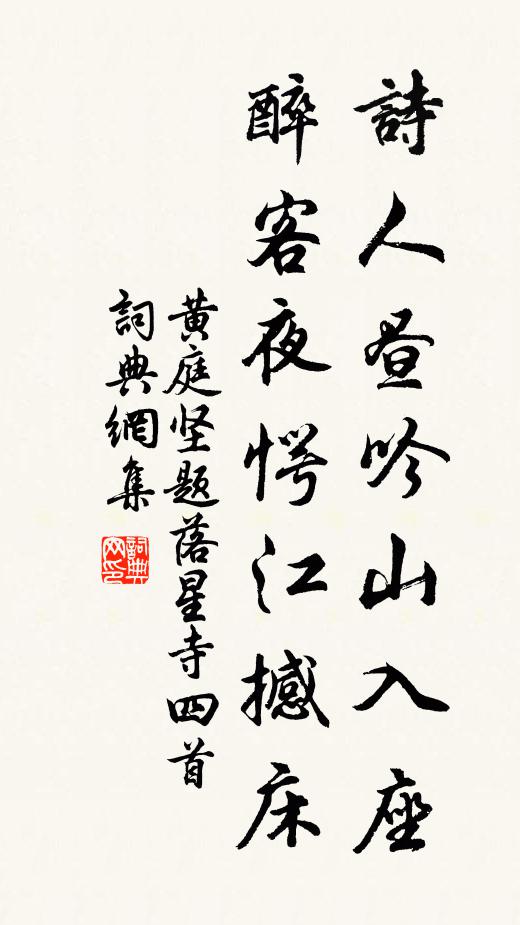 詩人昼吟山入座
醉客夜愕江撼床
黄庭坚题落星寺四首
詞典網集
詞典网印